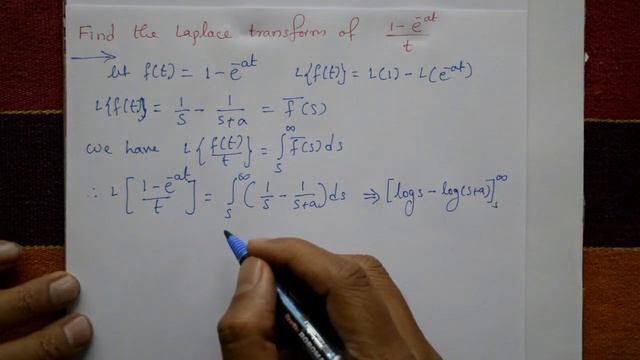 Find the Laplace transform of (1 - e^{-at})/t
let f(t) = 1 - e^{-at} L{f(t)} = L(1) - L(e^{-at})
L{f(t)} = 1/s - 1/(s+a) = f̅(s)
we have L{f(t)/t} = ∫_s^∞ f̅(s) ds
∴ L[(1 - e^{-at})/t] = ∫_s^∞ (1/s - 1/(s+a)) ds ⇒ [log s - log(s+a)]_s^∞